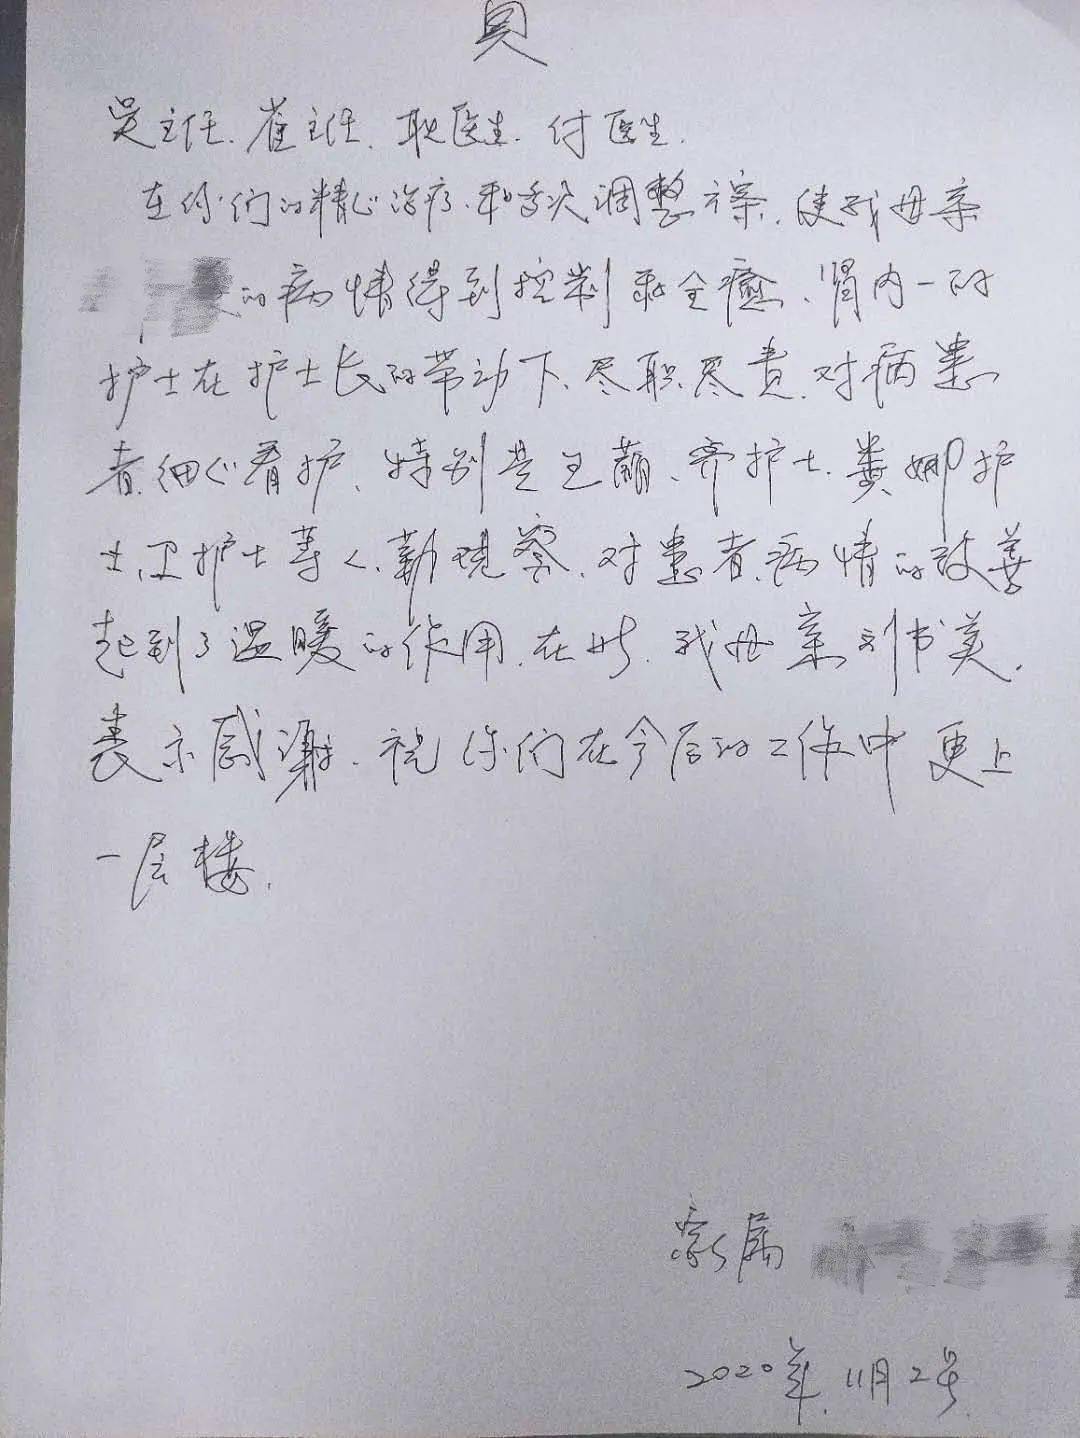 吴主任、崔主任、耿医生、付医生、
在你们的精心治疗、和多次调整方案、使我母亲
的病情得到控制和全愈、肾内一的
护士在护士长的带动下、尽职尽责、对病患
者细心看护、特别是王萌、齐护士、娄娜护
士、卫护士等人、勤观察、对患者病情的改善
起到了温暖的作用、在此、我母亲刘书美、
表示感谢、祝你们在今后的工作中更上
一层楼、
家属
2020年、11月2号、